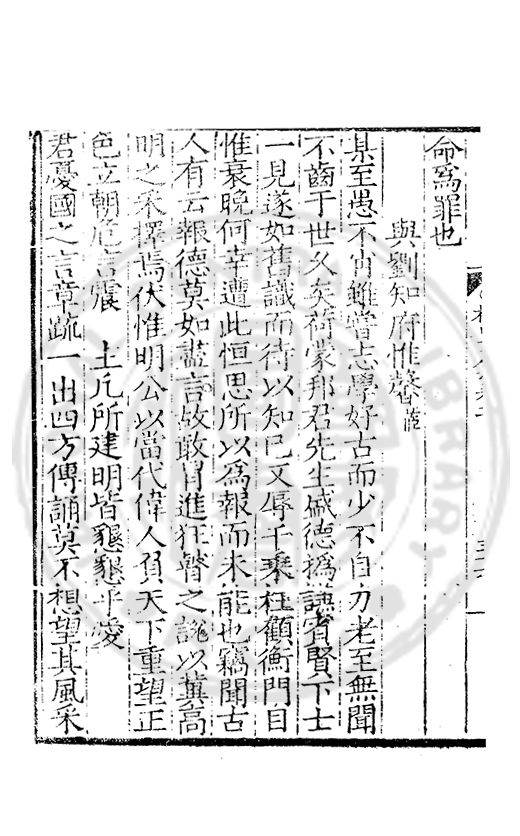 命爲罪也
與劉知府惟馨
某至愚不肖雖嘗志學好古而少不自力老至無聞
不齒于世久矣荷蒙邦君先生盛德撝謙賓賢下士
一見遂如舊識而待以知己又辱千乘枉顧衡門自
惟衰晚何幸遭此恒思所以爲報而未能也竊聞古
人有云報德莫如盡言故敢冒進狂瞽之說以冀高
明之采擇焉伏惟明公以當代偉人負天下重望正
色立朝危言震 上凡所建明皆懇懇乎愛
君憂國之言章疏一出四方傳誦莫不想望其風采